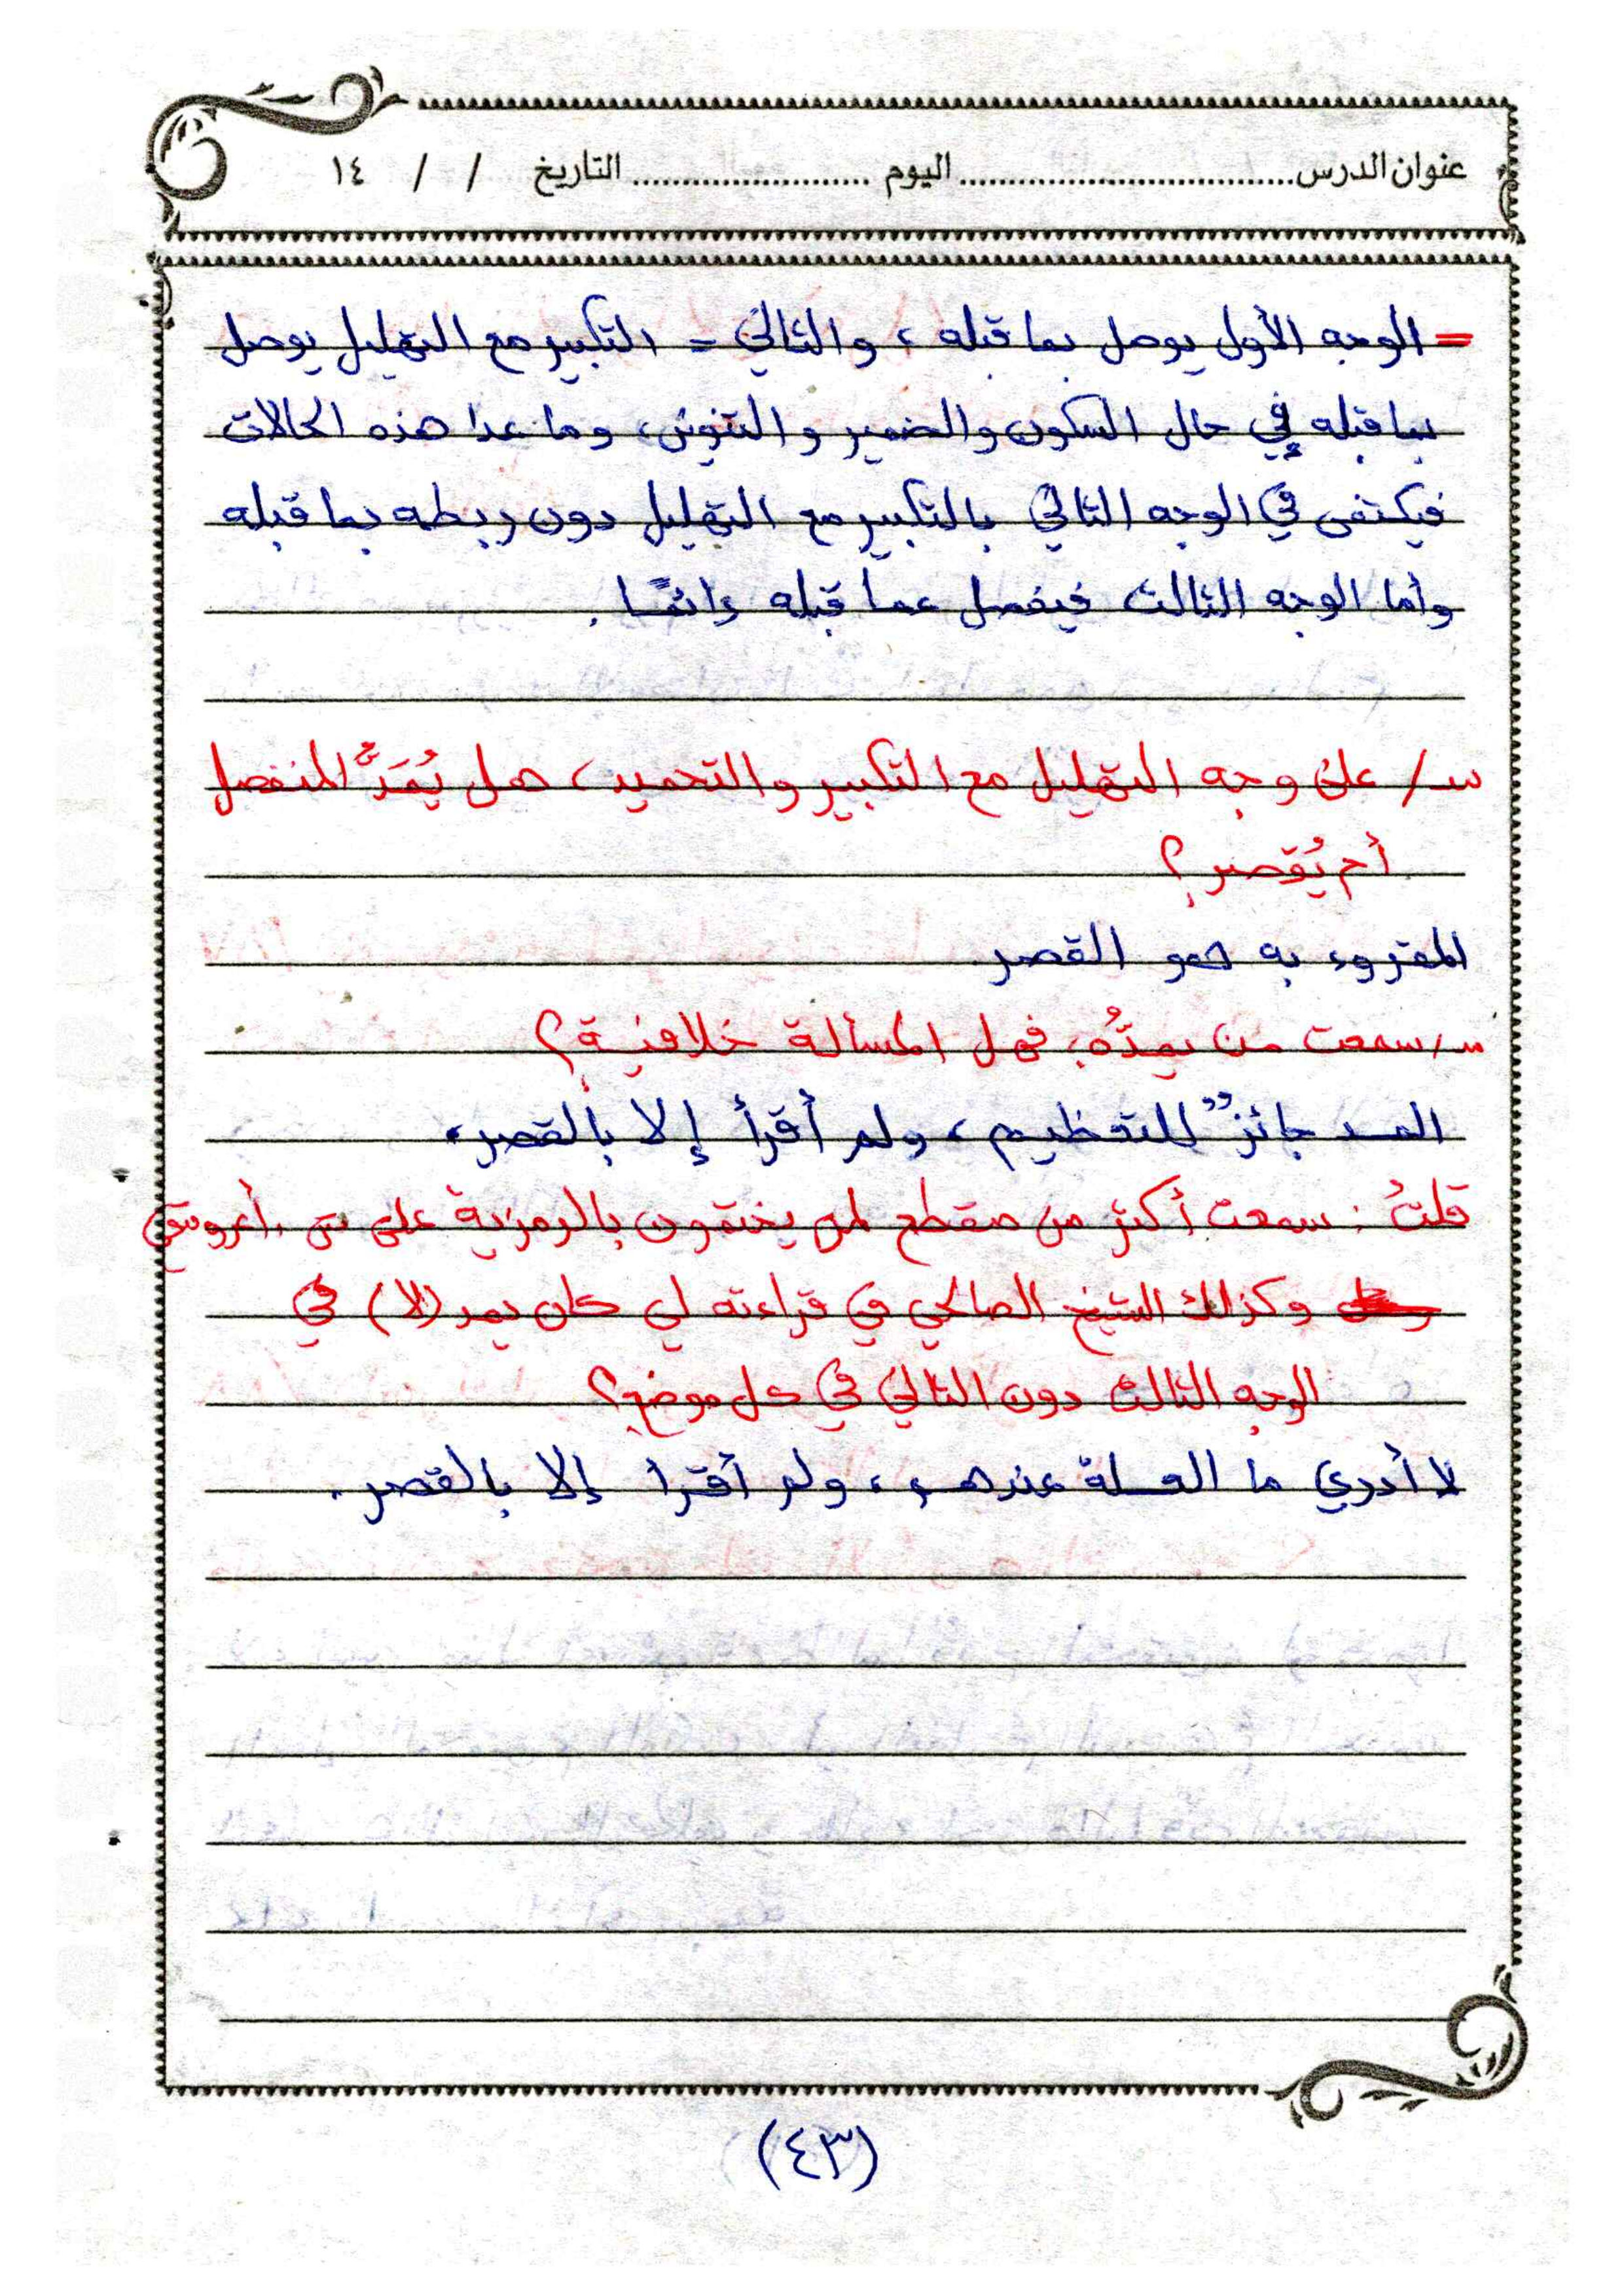 عنوان الدرس................................ اليوم ....................... التاريخ / / ١٤
= الوجه الأول يوصل بما قبله ، والثاني = التكبير مع التهليل يوصل
بما قبله في حال السكون والضمير والتنوين، وما عدا هذه الحالات
فيكتفى في الوجه الثاني بالتكبير مع التهليل دون ربطه بما قبله
وأما الوجه الثالث فيفصل عما قبله دائمًا .
س/ على وجه التهليل مع التكبير والتحميد، هل يُمَدُّ المنفصل
أم يُقصر؟
المقروء به هو القصر
س/ سمعت من يمدُّه، فهل المسألة خلافية؟
المد جائزٌ للتعظيم، ولم أقرأ إلا بالقصر.
قلتُ : سمعت أكثر من مقطع لمن يختمون بالرمزية على
وكذلك الشيخ الصالحي في قراءته لي كان يمد (لا) في
الوجه الثالث دون الثاني في كل موضع؟
لا أدري ما العلة عندهم، ولم أقرأ إلا بالقصر.
(٤٣)